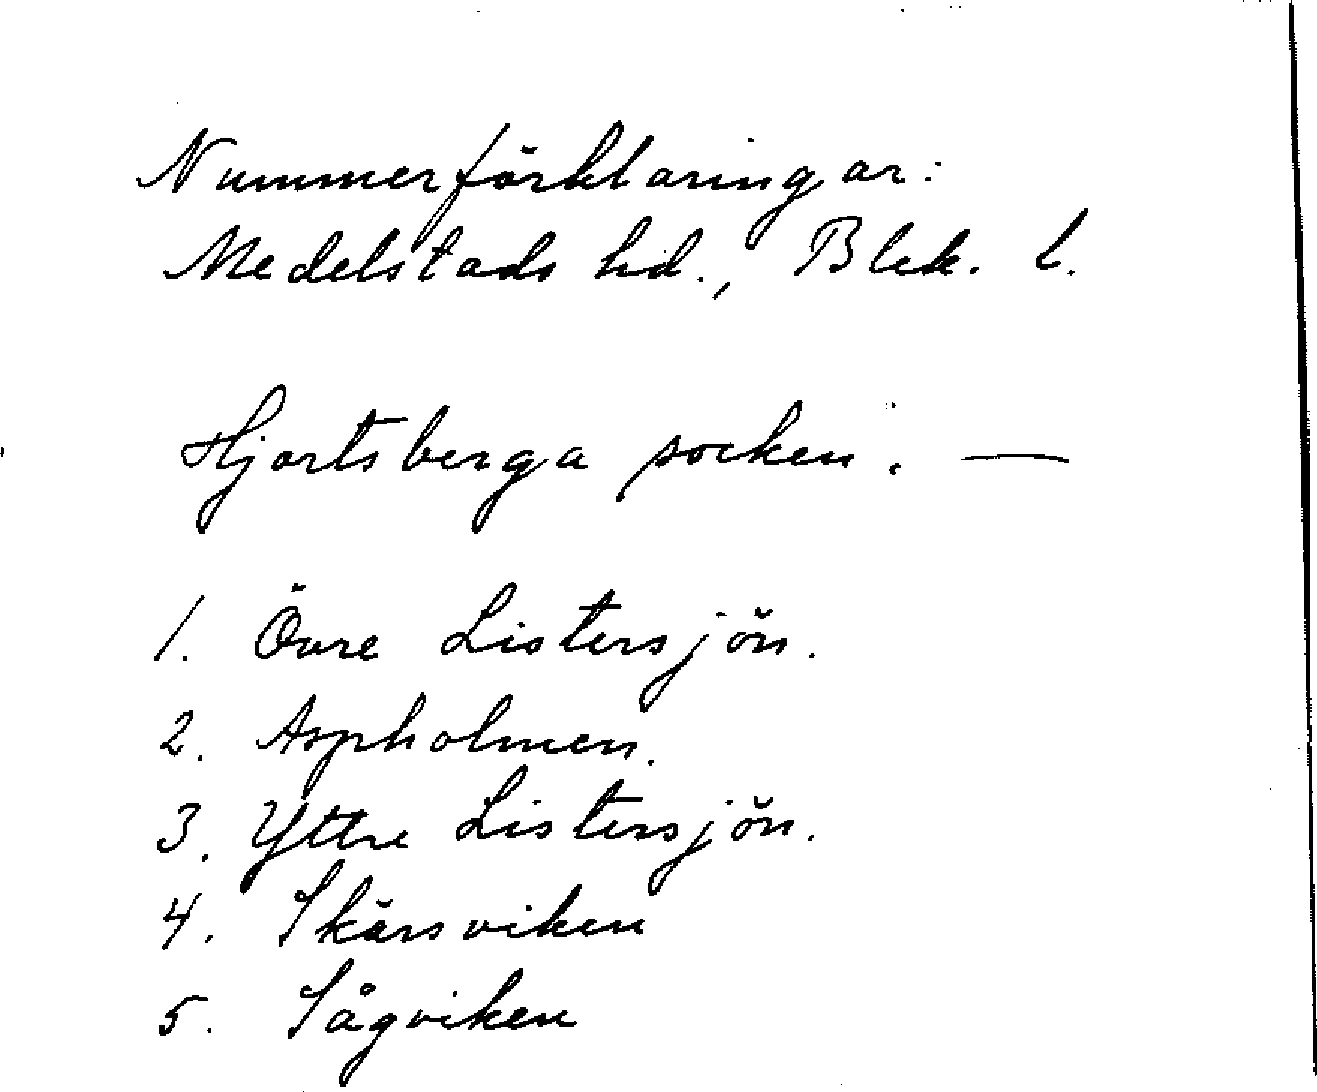 Nummerförklaringar:
Medelstads hd., Blek. l.
Hjortsberga socken: —
1. Övre Listersjön.
2. Aspholmen.
3. Yttre Listersjön.
4. Skärsviken
5. Sågviken